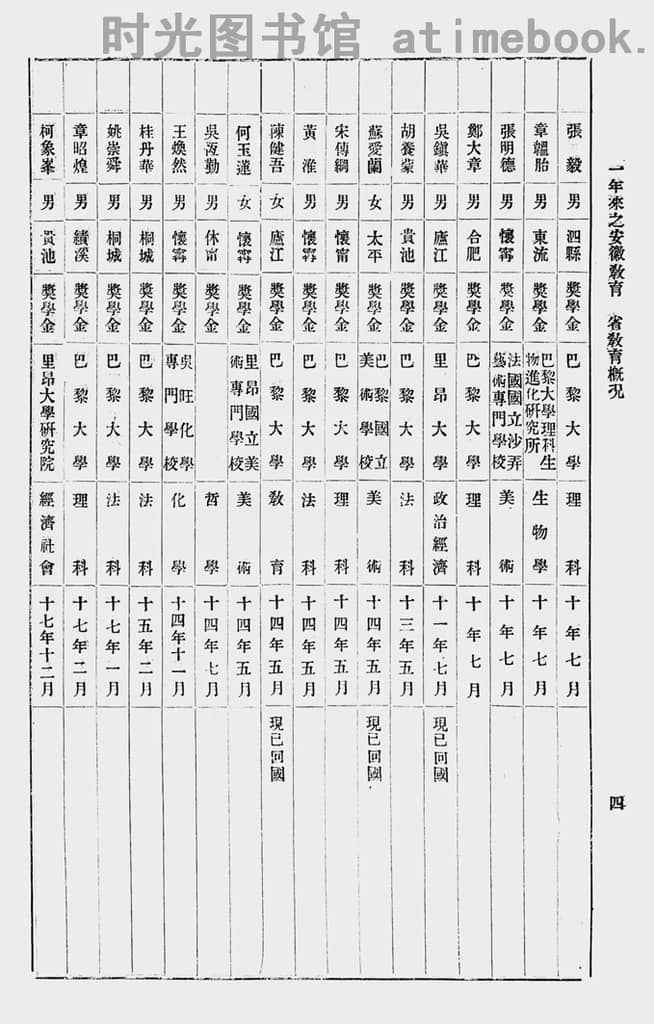 时光图书馆 atimebook.
一年來之安徽敎育 省敎育概况
四
張毅 男 泗縣 奬學金 巴黎大學 理科 十年七月
章韞胎 男 東流 奬學金 巴黎大學理科生物進化研究所 生物學 十年七月
張明德 男 懷寗 奬學金 法國國立沙弄藝術專門學校 美術 十年七月
鄭大章 男 合肥 奬學金 巴黎大學 理科 十年七月
吳鎭華 男 廬江 奬學金 里昂大學 政治經濟 十一年七月 現已回國
胡養蒙 男 貴池 奬學金 巴黎大學 法科 十三年五月
蘇愛蘭 女 太平 奬學金 巴黎國立美術學校 美術 十四年五月 現已回國
宋傳綱 男 懷甯 奬學金 巴黎大學 理科 十四年五月
黃淮 男 懷寗 奬學金 巴黎大學 法科 十四年五月
陳健吾 女 廬江 奬學金 巴黎大學 敎育 十四年五月 現已回國
何玉蓮 女 懷寗 奬學金 里昂國立美術專門學校 美術 十四年五月
吳恆勤 男 休甯 奬學金 哲學 十四年七月
王煥然 男 懷寗 奬學金 吳旺化學專門學校 化學 十四年十一月
桂丹華 男 桐城 奬學金 巴黎大學 法科 十五年二月
姚崇舜 男 桐城 奬學金 巴黎大學 法科 十七年一月
章昭煌 男 績溪 奬學金 巴黎大學 理科 十七年二月
柯象峯 男 貴池 奬學金 里昂大學研究院 經濟社會 十七年十二月